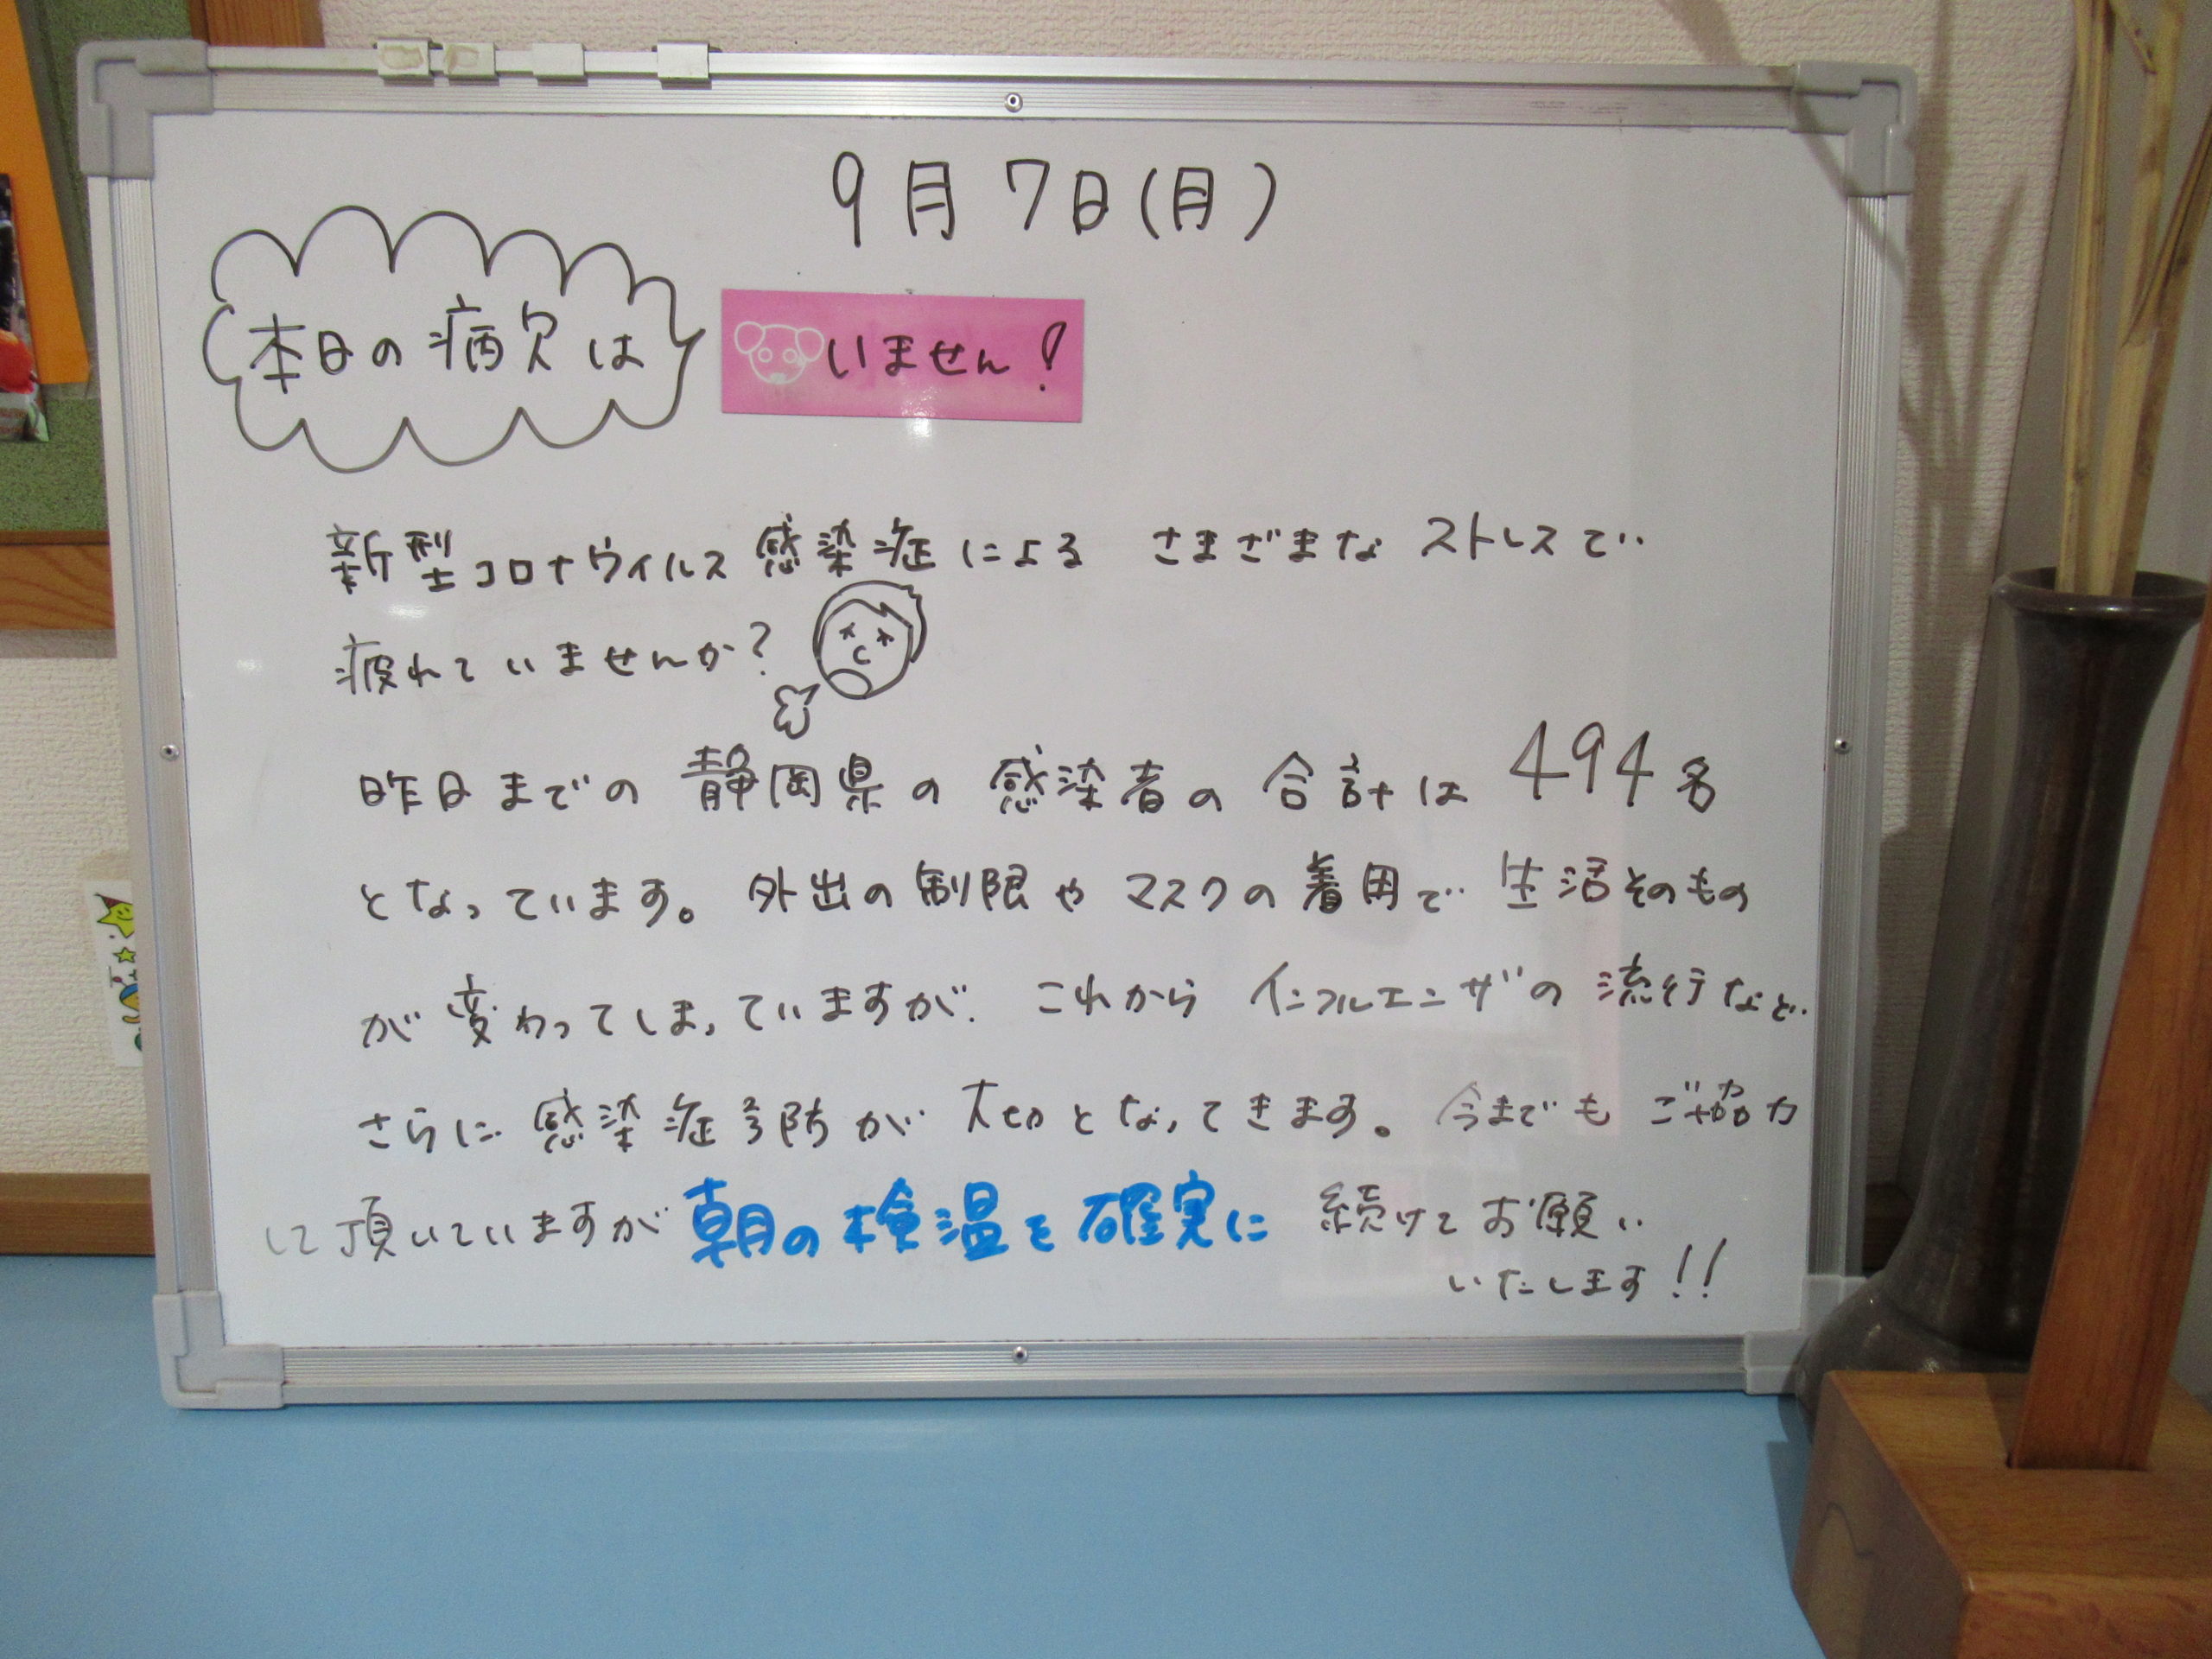 9月7日(月)
本日の病欠は
いません!
新型コロナウイルス感染症による さまざまなストレスで
疲れていませんか?
昨日までの静岡県の感染者の合計は 494名
となっています。外出の制限やマスクの着用で生活そのもの
が変わってしまっていますが、これからインフルエンザの流行など
さらに感染症予防が大切となってきます。今までもご協力
して頂いていますが朝の検温を確実に続けてお願い
いたします!!